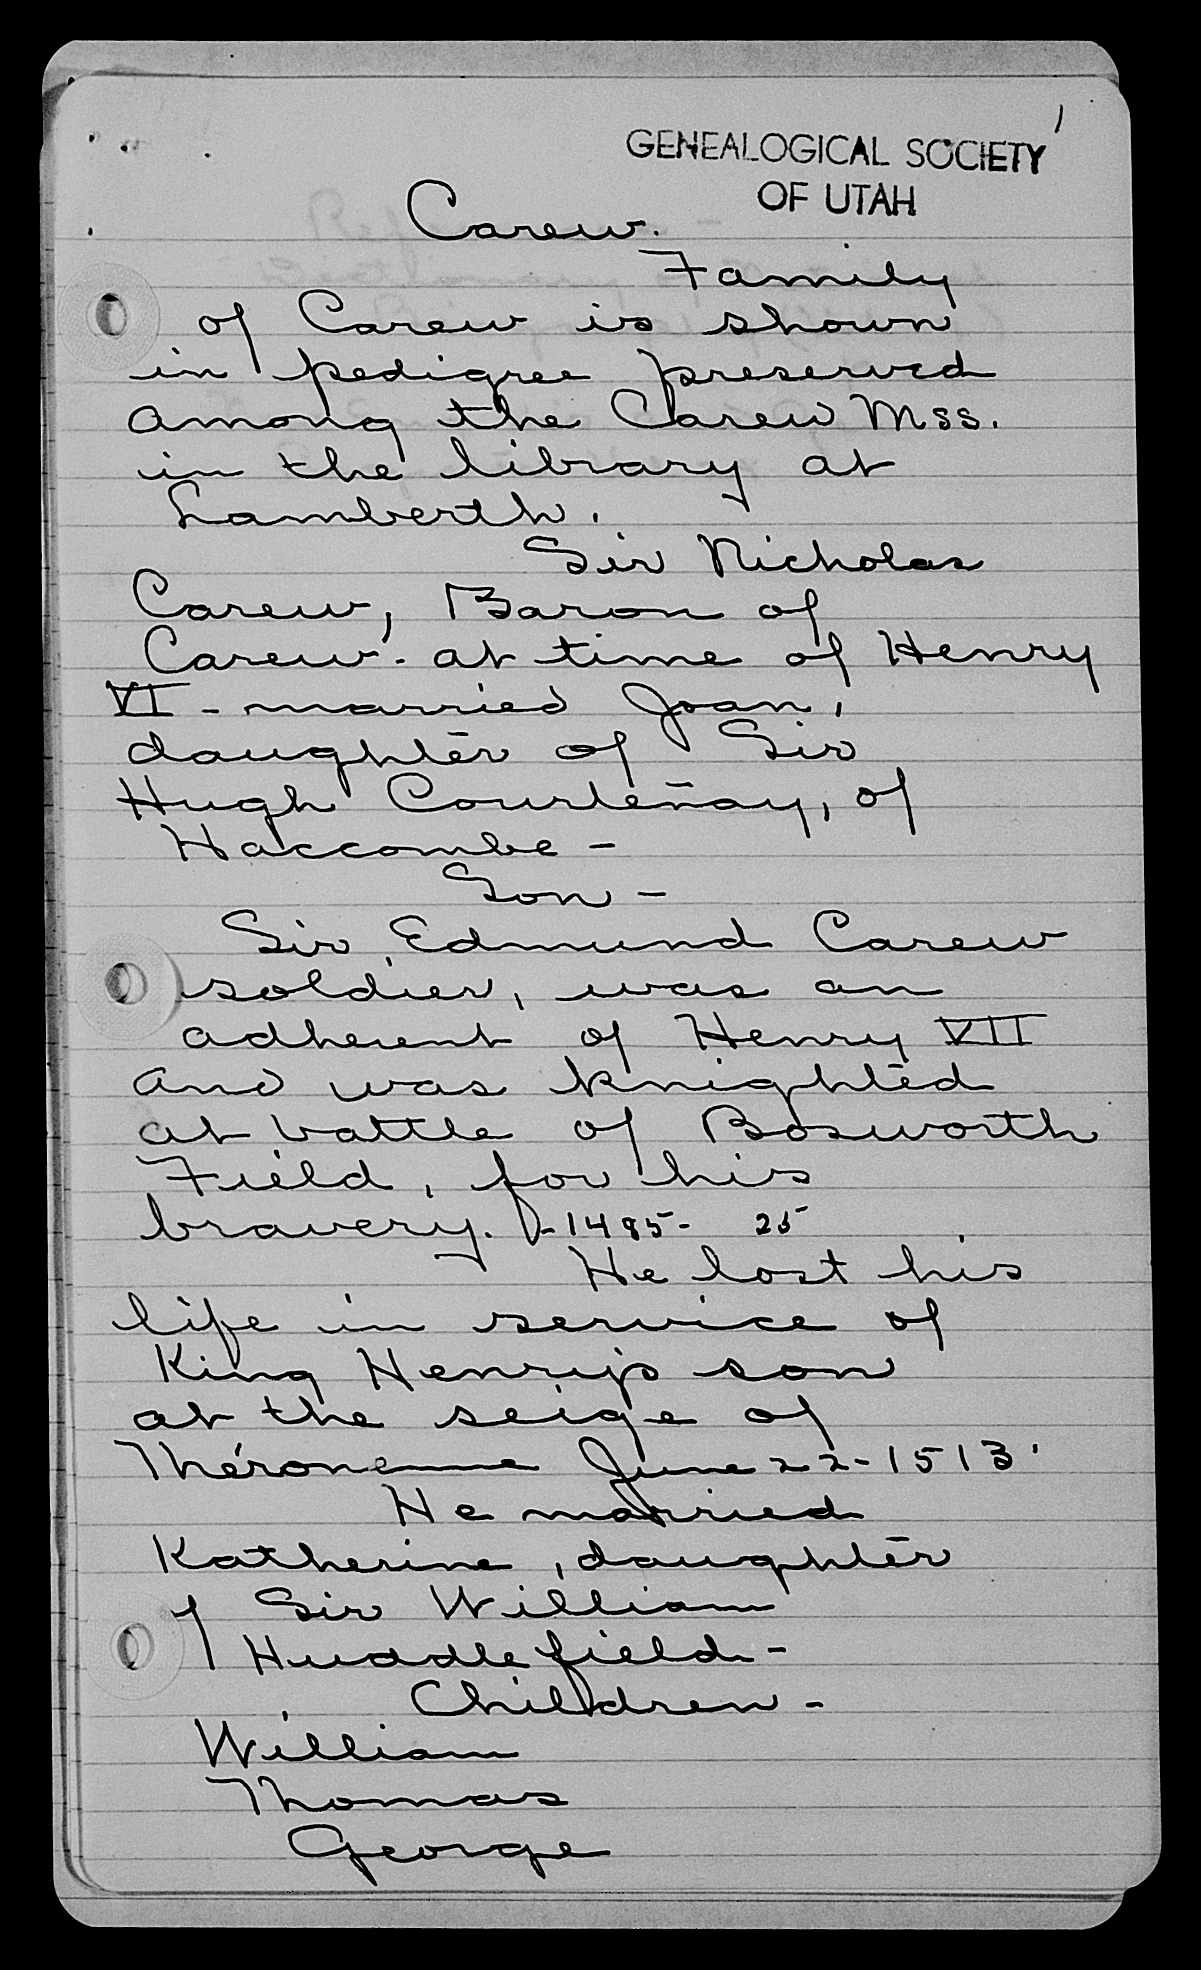 1
GENEALOGICAL SOCIETY
OF UTAH
Carew.
Family
of Carew is shown
in pedigree preserved
among the Carew Mss.
in the library at
Lamberth.
Sir Nicholas
Carew, Baron of
Carew - at time of Henry
VI - married Joan,
daughter of Sir
Hugh Courtenay, of
Haccombe -
Son -
Sir Edmund Carew
soldier, was an
adherent of Henry VII
and was knighted
at battle of Bosworth
Field, for his
bravery. - 1485 - 25
He lost his
life in service of
King Henry's son
at the seige of
Théronenne June 22-1513.
He married
Katherine, daughter
of Sir William
Huddlefield -
Children -
William
Thomas
George